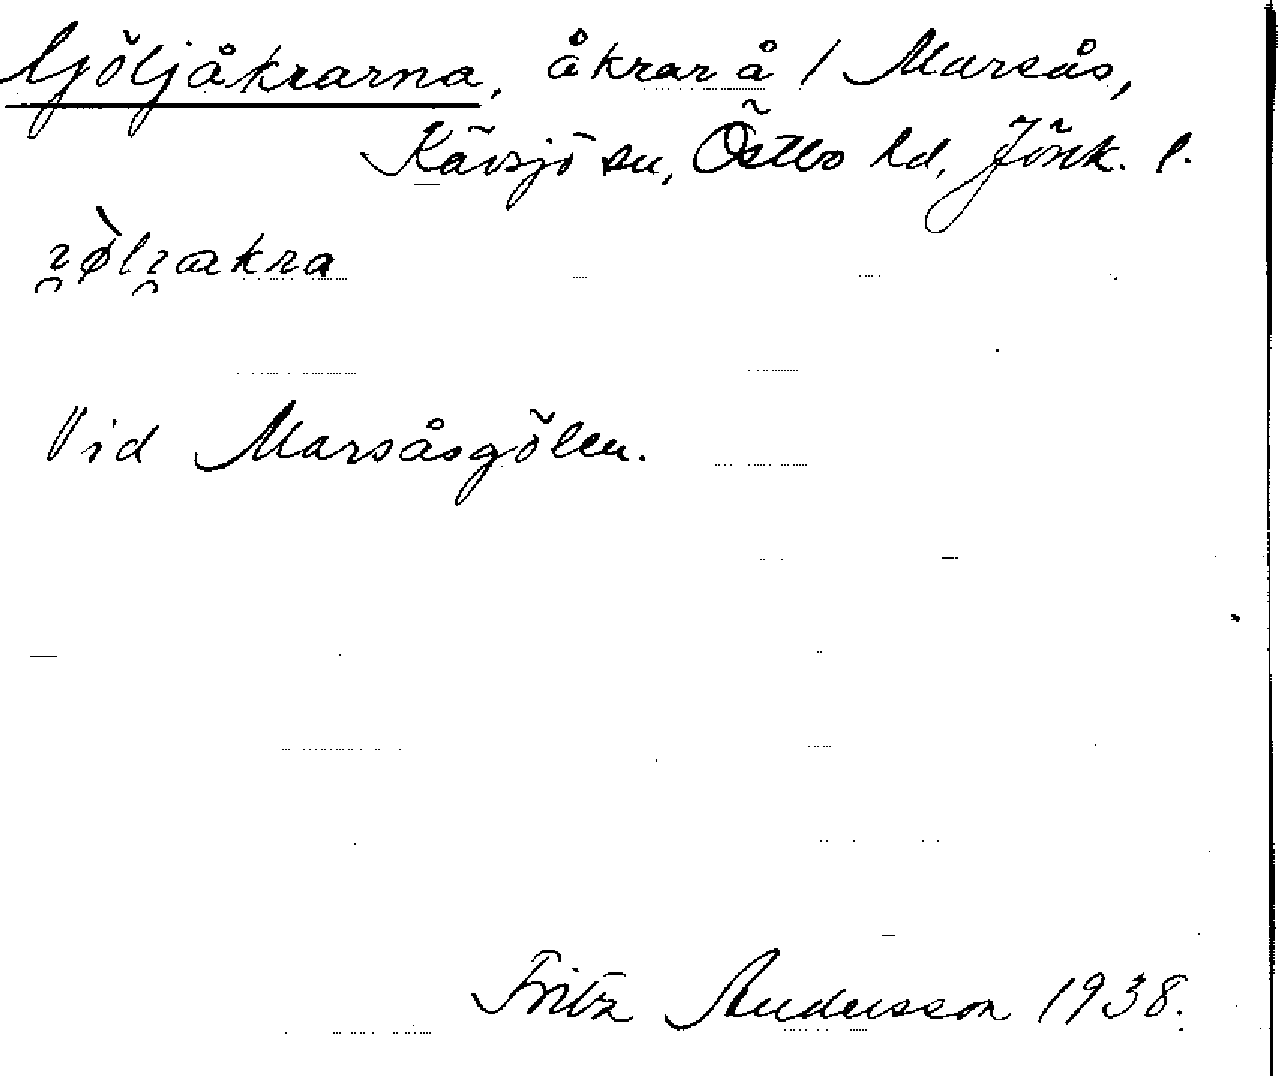 Göljåkrarna, åkrar å / Marsås,
Kävsjö sn, Östbo hd, Jönk. l.
Vid Marsåsgölen.
Fritz Andersson 1938.